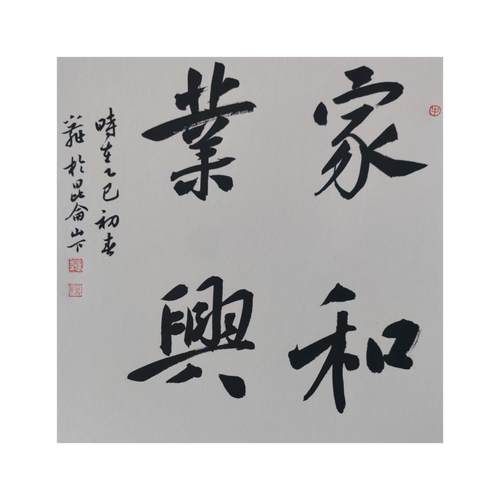 家和
業興
時在乙巳初春
於昆侖山下